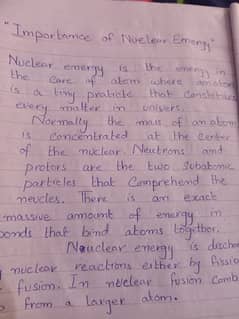 "Importance of Nuclear Energy"
Nuclear energy is the energy in
the core of atom where an atom
is a tiny praticle that constitutes
every matter in univers.
Normally the mass of an atom
is concentrated at the center
of the nuclear. Neutrons and
protors are the two subatomic
particles that comprehend the
neucles. There is an exact
massive amount of energy in
bonds that bind atoms together.
Nouclear energy is dischar
nuclear reactions either by fissio
fusion. In nuclear fusion comb
to from a larger atom.